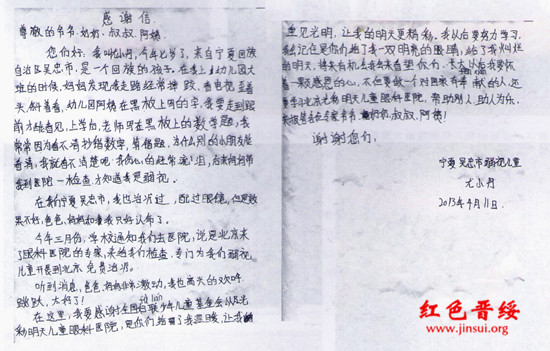 感谢信
尊敬的爷爷、奶奶、叔叔、阿姨:
您们好!我叫尤小丹,今年七岁了,来自宁夏回族
自治区吴忠市,是一个回族的孩子。在我上幼儿园大
班的时候,妈妈发现我走路经常摔跤,看电视歪着
头、斜着看,幼儿园阿姨在黑板上写的字,我要走到跟
前才能看见,上学后,老师写在黑板上的数学题,我
常常因为看不清抄错数字,算错题,为什么别的小朋友能
看清,我就看不清楚呢?我伤心的经常流泪,后来妈妈带
我到医院一检查才知道我是弱视。
在我们宁夏吴忠市,我也治疗过,配过眼镜,但是效
果不好,爸爸、妈妈和我只好认命了。
今年三月份,学校通知我们去医院,说是北京来
了眼科医院的专家,来给我们检查,专门为我们弱视
儿童开展到北京免费治疗。
听到消息,爸爸、妈妈非常激动,我也高兴的欢呼
跳跃,太好了!
在这里,我要感谢全国台联少年儿童基金会以及光
明天儿童眼科医院,是你们给了我温暖,让我
重见光明,让我的明天更精彩,我以后要努力学习,
我会记住是你们给了我一双明亮的眼睛,给了我灿烂
的明天,将来有机会我要来看望你们,长大以后我要怀
着一颗感恩的心,不但要做一个对国家有贡献的人,还
要学习北京光明明天儿童眼科医院,帮助别人,助人为乐,
来报答关心我的爷爷、奶奶、叔叔、阿姨!
谢谢您们!
宁夏吴忠市弱视儿童
尤小丹
2013年4月11日
红色晋绥
www.jinsui.org